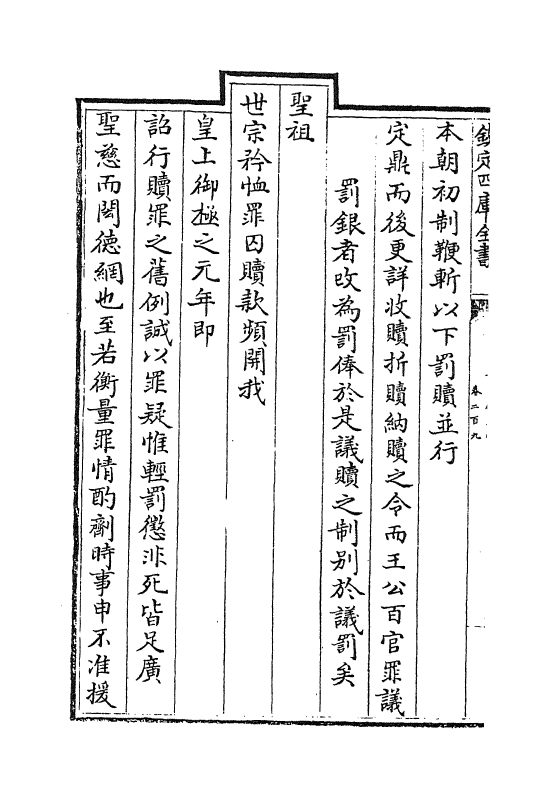 欽定四庫全書
卷二百九
本朝初制鞭斬以下罰贖並行
定鼎而後更詳收贖折贖納贖之令而王公百官罪議
罰銀者改為罰俸於是議贖之制别於議罰矣
聖祖
世宗矜恤罪囚贖款頻開我
皇上御極之元年即
詔行贖罪之舊例誠以罪疑惟輕罰懲非死皆足廣
聖慈而闓德網也至若衡量罪情酌劑時事申不准援